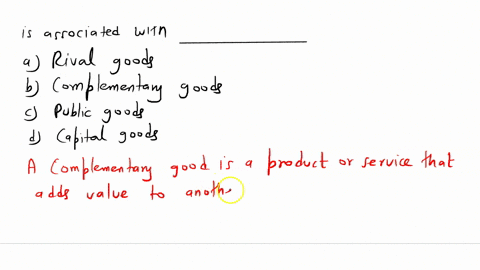 is associated with ____________
a) Rival goods
b) Complementary goods
c) Public goods
d) Capital goods
A complementary good is a product or service that
adds value to anoth